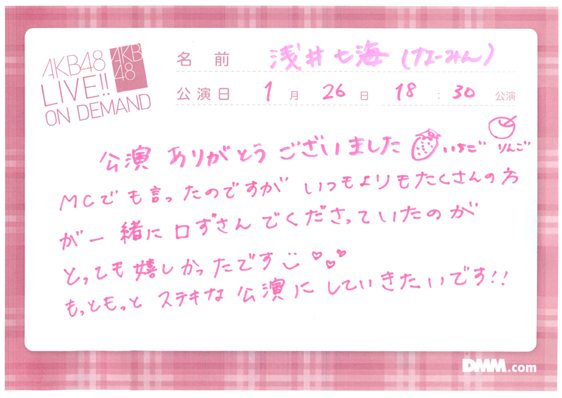 AKB48
LIVE!!
ON DEMAND
AKB
48
名前 浅井七海(なーみん)
公演日 1月26日 18:30公演
公演 ありがとう ございました いちご りんご
MCでも言ったのですが いつもよりもたくさんの方
が一緒に口ずさんでくださっていたのが
とっても嬉しかったです
もっともっと ステキな 公演に していきたいです!!
DMM.com